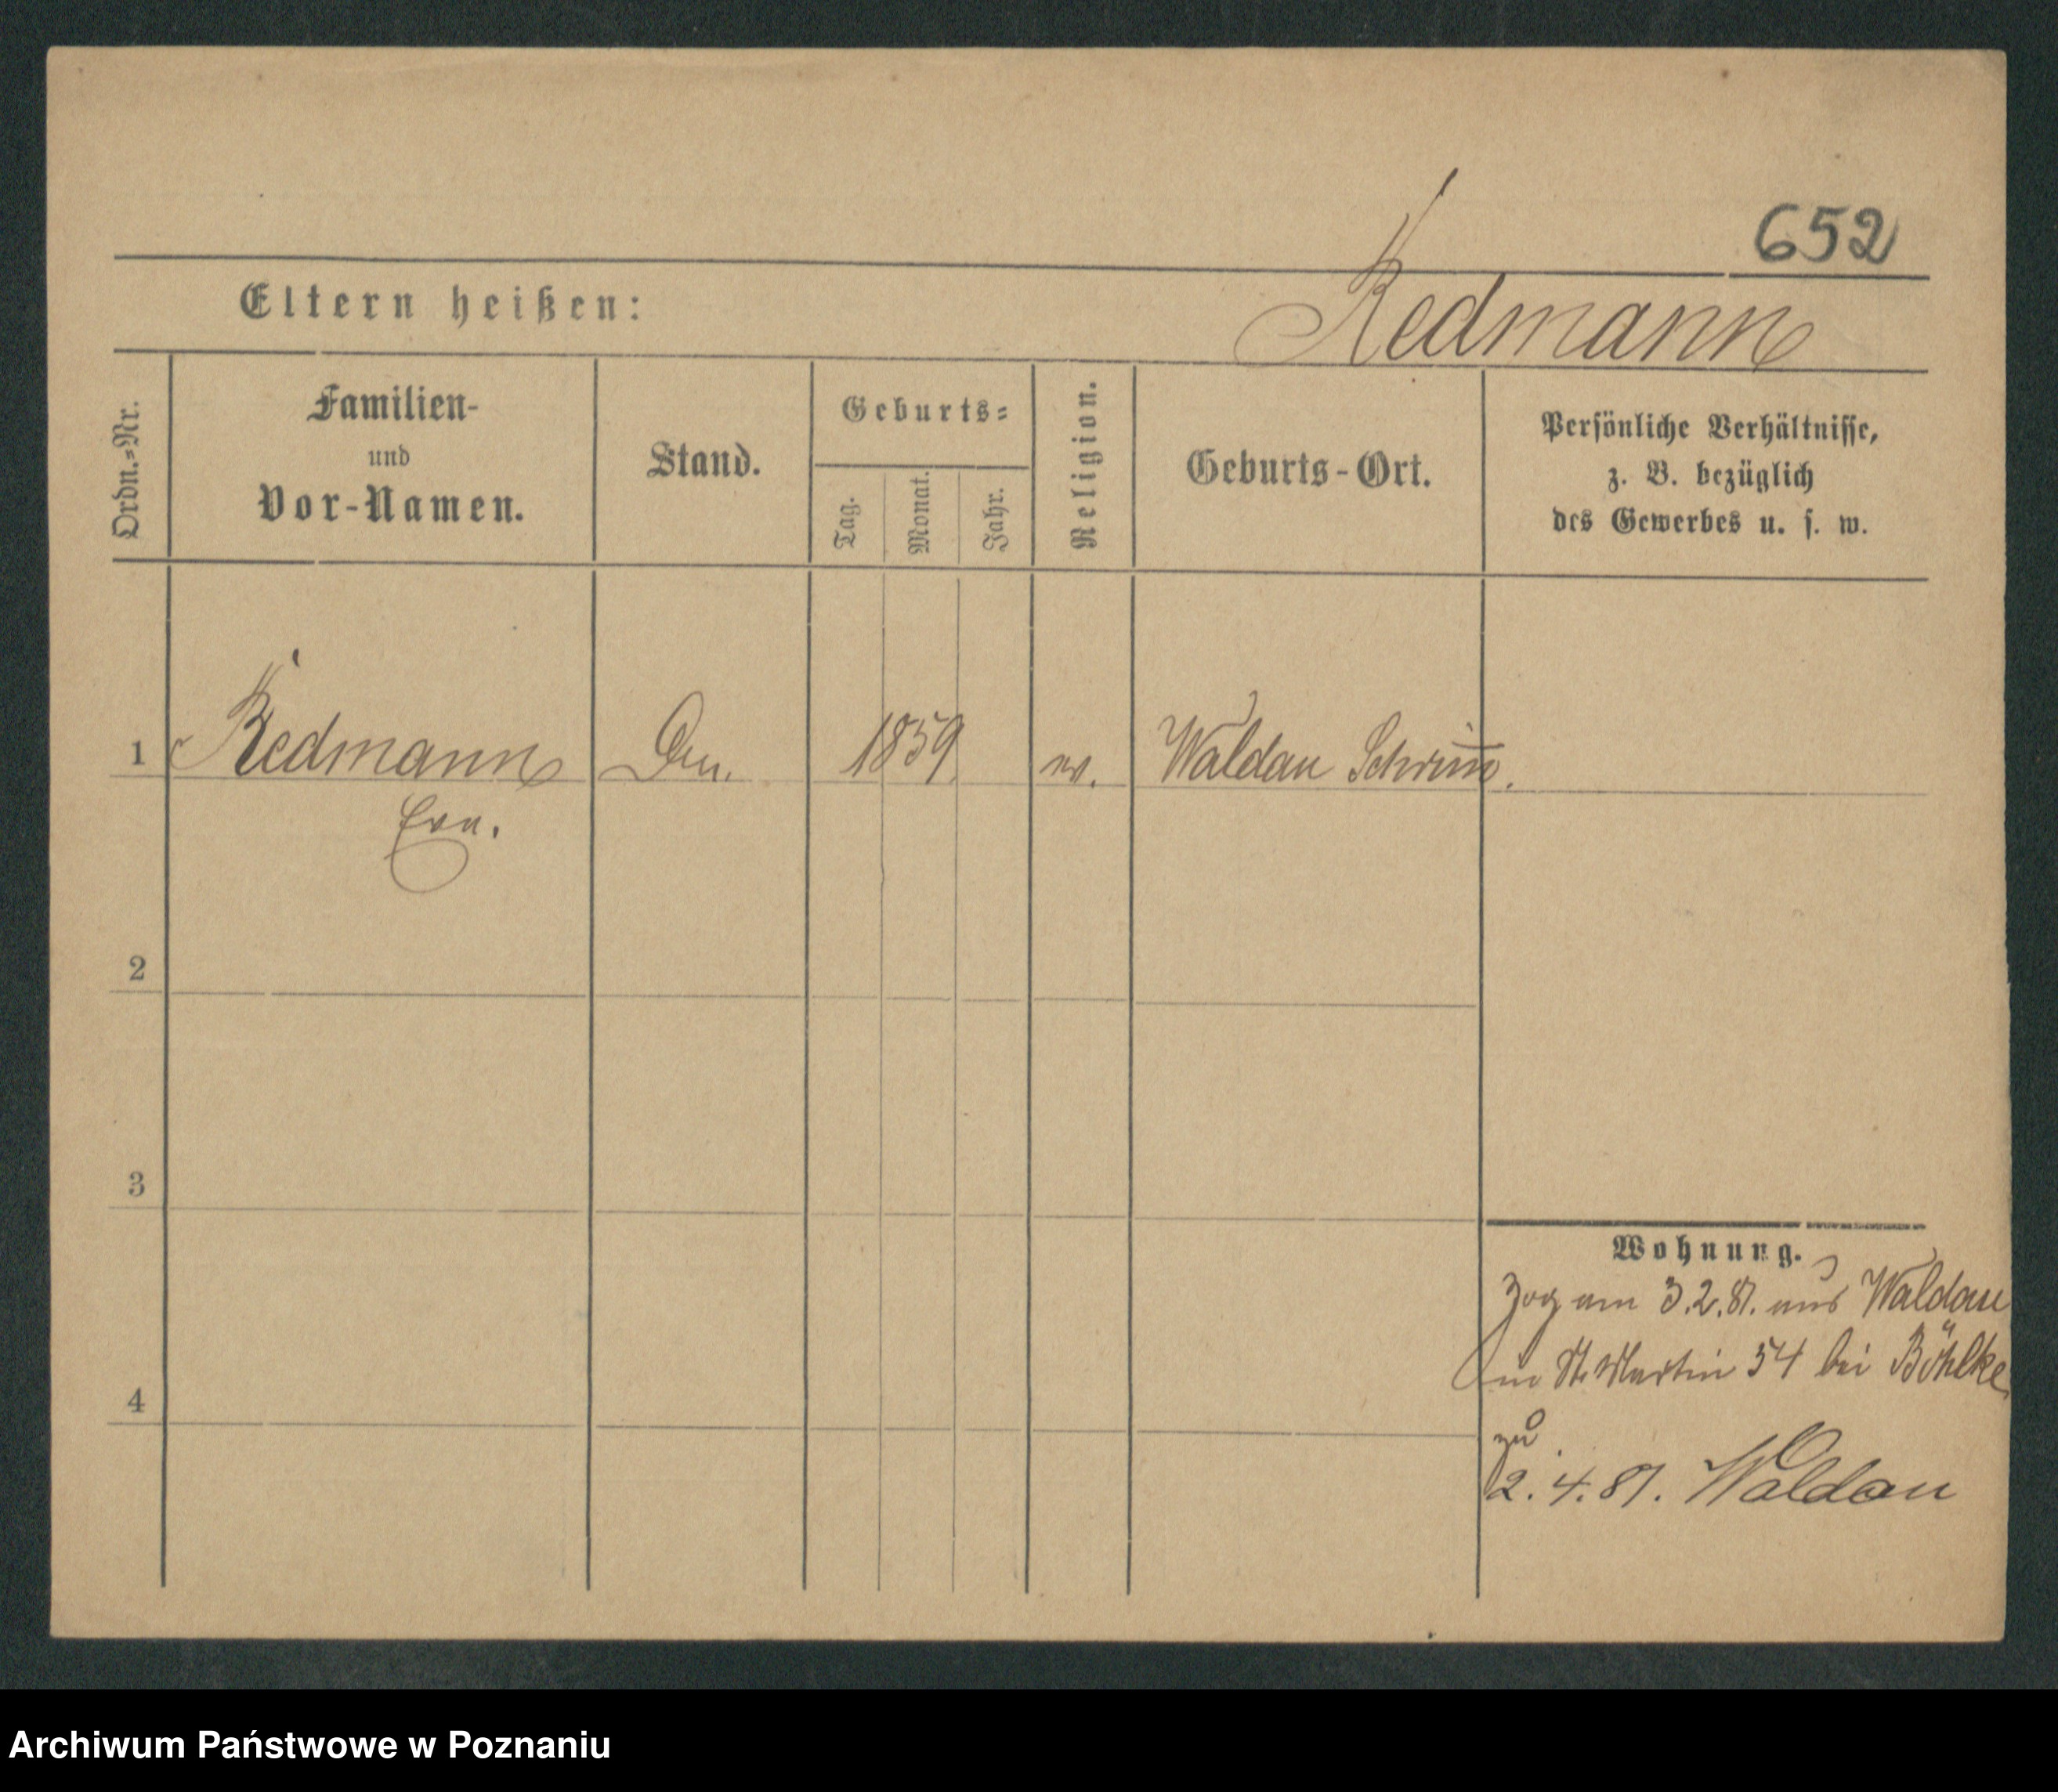 652
Eltern heißen:
Redmann
Ordn.=Nr.
Familien-
und
Vor-Namen.
Stand.
Geburts=
Tag.
Monat.
Jahr.
Religion.
Geburts-Ort.
Persönliche Verhältnisse,
z. B. bezüglich
des Gewerbes u. s. w.
1 Redmann 1859 Waldau Schrim̅.
Eva.
2
3
4
Wohnung.
Zog am 3.2.81. aus Waldau
in St. Martin 54 bei Böhlke
zu
2.4.81. Waldau
Archiwum Państwowe w Poznaniu